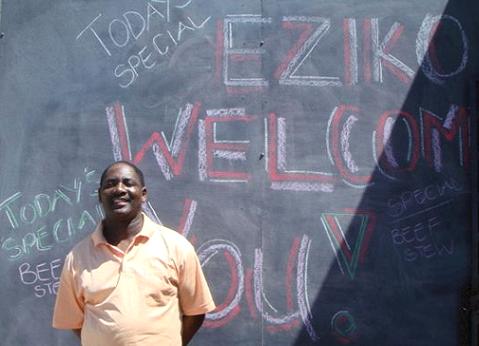 TODAY'S
SPECIAL
EZIKO
WELCOME
YOU!
TODAY'S
SPECIAL
BEEF
STEW
SPECIAL
BEEF
STEW